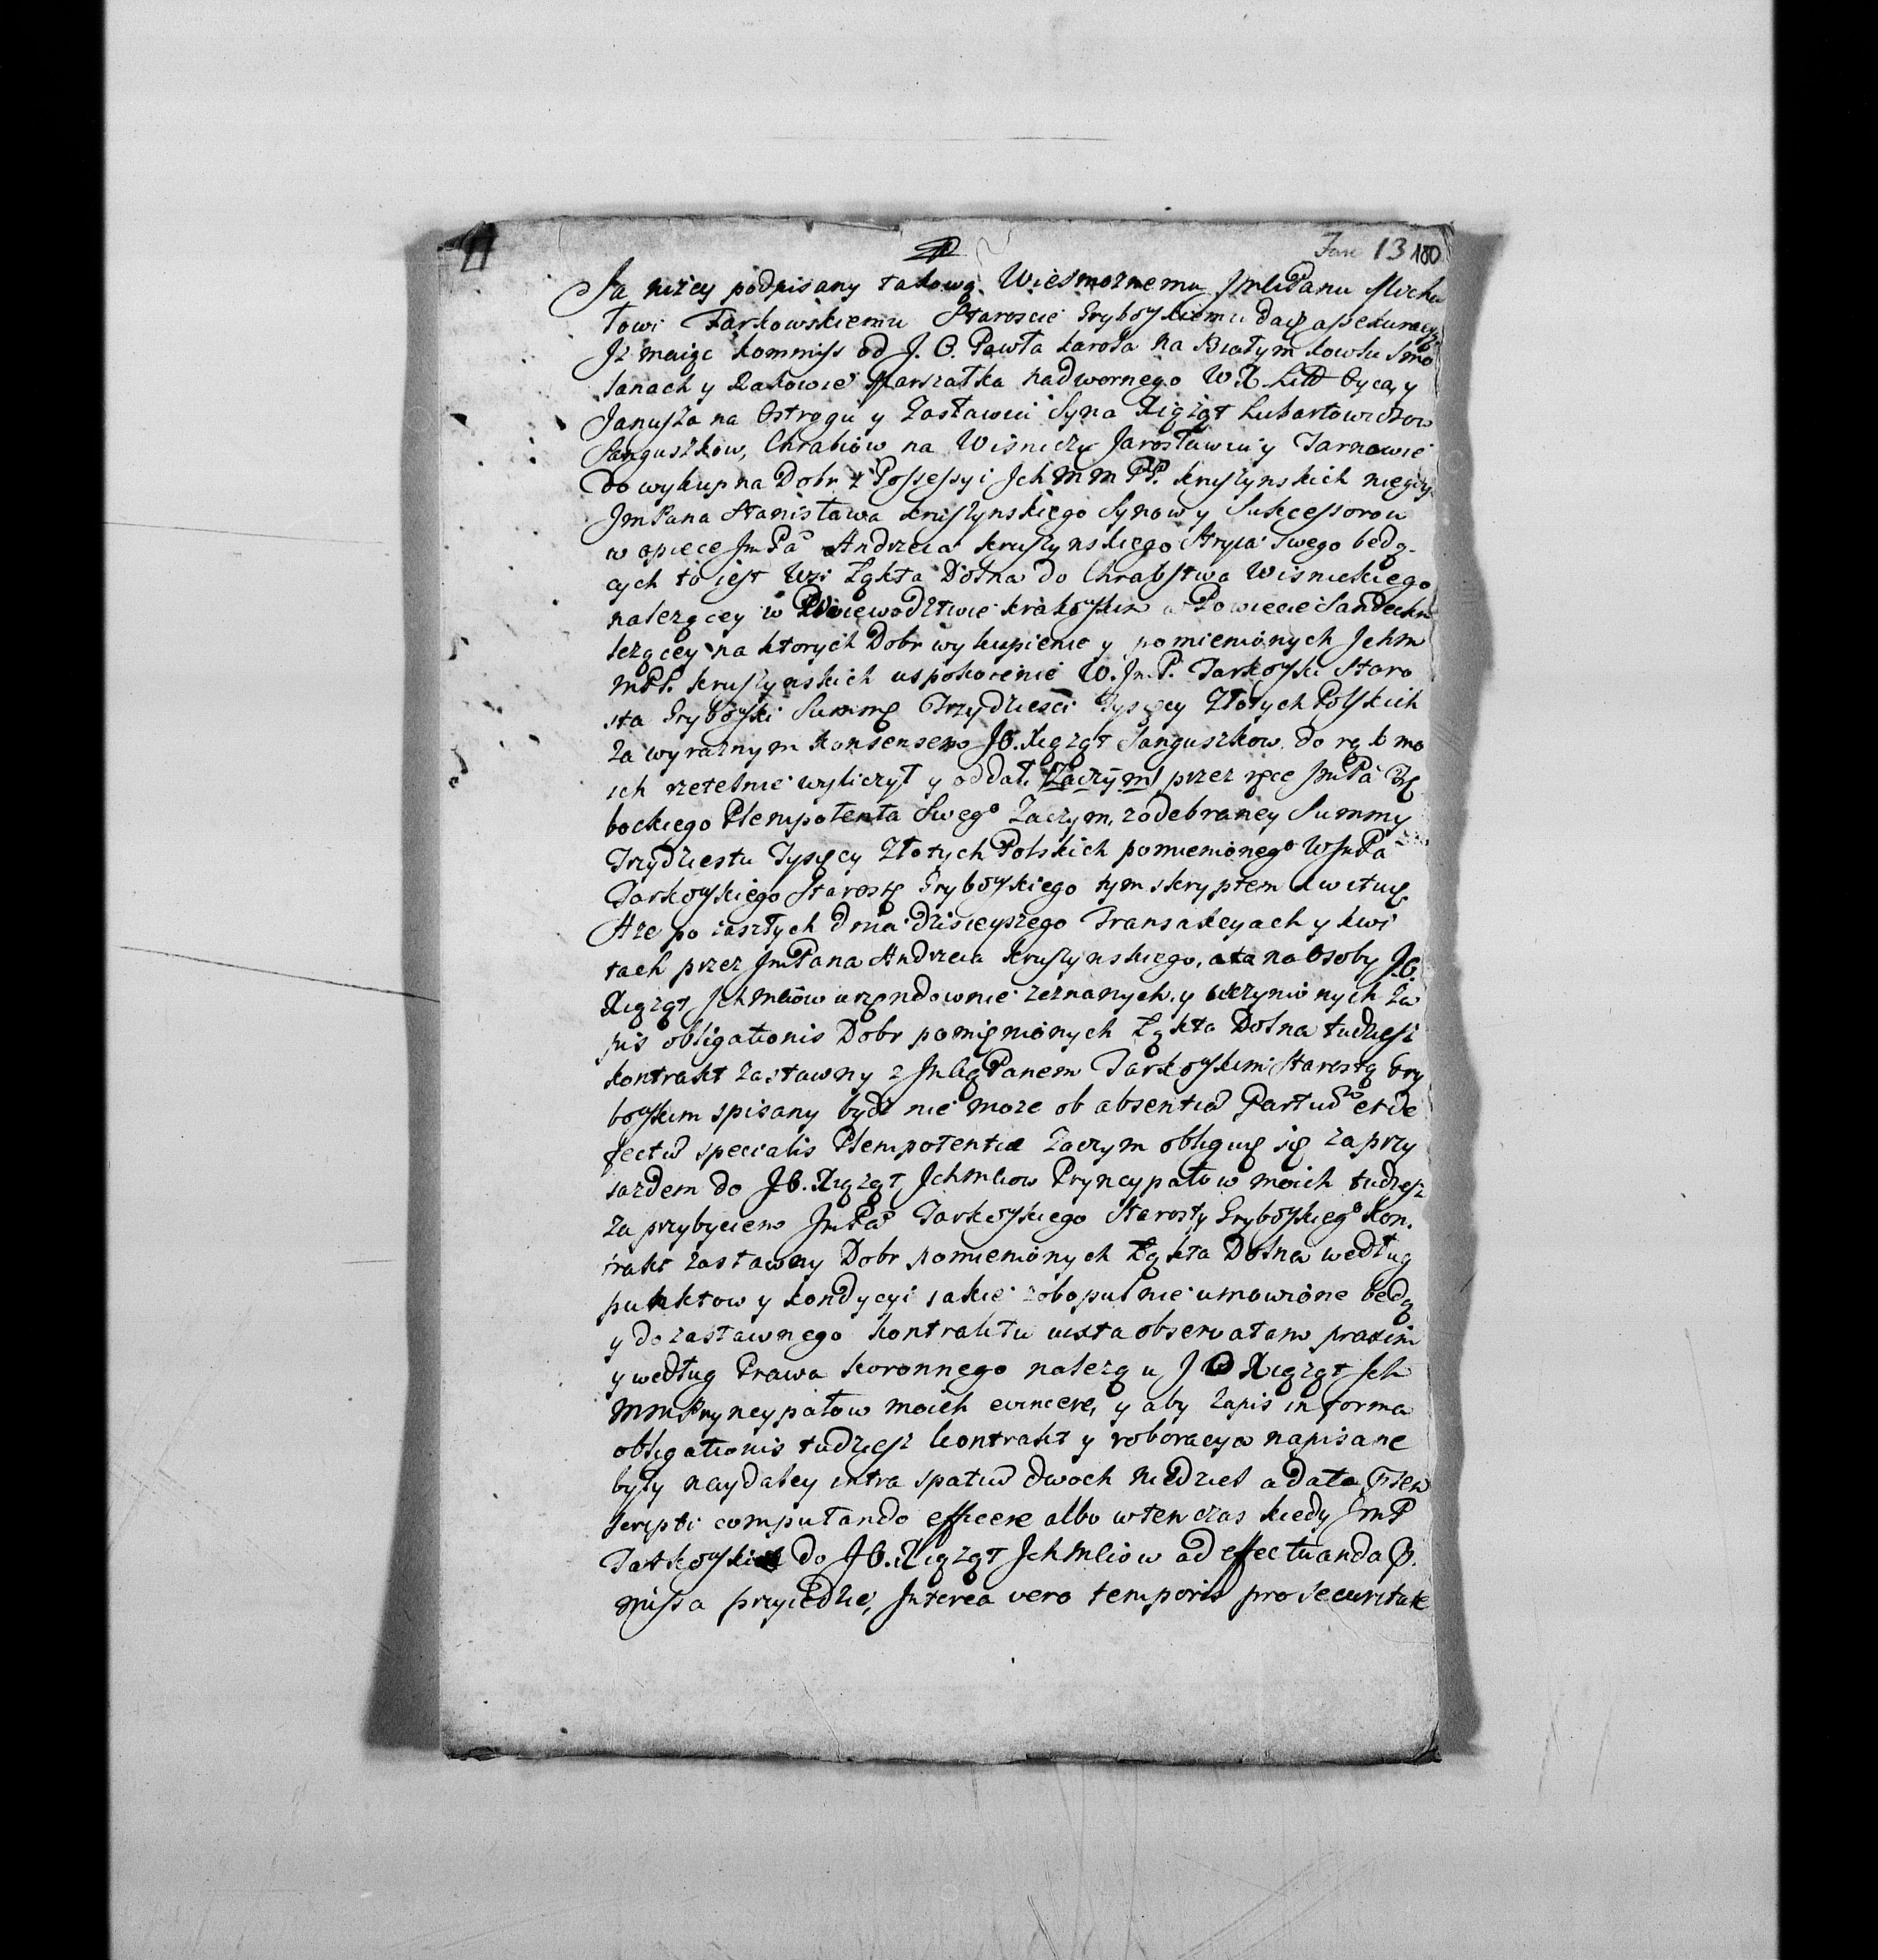 11
Fasc 13 180
Ja niżey podpisany takową Wielmożnemu Jmći Panu Micha
łowi Tarkowskiemu Staroscie Grybowskiemu daię assekuracyą
Jż maiąc kommiss od J. O. Pawła Karola na Białym Kowlu Smo
lanach y Rakowie Marszałka nadwornego W X Litt Oyca, y
Janusza na Ostrogu y Zasławiu Syna Xiążąt Lubartowiczow
Sanguszkow, Chrabiow na Wisniczu Jarosławiu y Tarnowie
do wykupna Dobr z Possessyi Jch Mm PP. Kruszynskich niegdy
Jm Pana Stanisława Kruszynskiego Synow y Sukcessorow
w opiece Jm Pa Andrzeia Kruszynskiego Stryia swego będą-
cych to iest Wsi Łąkta Dolna do Chrabstwa Wisnickiego
nalezącey w Woiewodztwie Krakowskim w Powiecie Sandeckim
lezącey na ktorych Dobr wykupienie y pomienionych Jchm
mPP. Kruszynskich uspokoienie W. Jm P. Tarkowski Staro
sta Grybowski Summę Trzydziesci Tysięcy Złotych Polskich
za wyraznym konsensem JO. Xiążąt Sanguszkow do rąk mo
ich rzetelnie wyliczył y oddał. Zaczym przez ręce Jm Pa
bockiego Plempotenta Swego Zaczym z odebraney Summy
Trzydziestu Tysięcy Złotych Polskich pomienionego W Jm Pa
Tarkowskiego Starostę Grybowskiego tym skryptem kwituię
A ze po zaszłych dnia dzisieyszego Transakcyach y kwi
tach przez Jm Pana Andrzeia Kruszynskiego, a to na Osoby J.O.
Xiążąt Jchmciow urzendownie zeznanych y uczynionych Za
pis obligationis Dobr pomienionych Łąkta Dolna tudziesz
kontrakt zastawny z Jmcią Panem Tarkowskim Starostą Gry
bowskim spisany bydz nie moze ob absentia Partium et de
fectu specialis Plempotentiae zaczym obliguię się za przy
iazdem do JO. Xiążąt Jchmciow Pryncypałow moich tudziesz
za przybyciem Jm Pa Tarkowskiego Starosty Grybowskiego Kon.
trakt zastawny Dobr pomienionych Łąkta Dolna według
punktow y kondycyi iakie zobopulnie umowione będą
y do zastawnego kontraktu iuxta observatam praxim
y według Prawa koronnego nalezą u J O Xiążąt Jch
Mm Pryncypałow moich evincere, y aby zapis in forma
obligationis tudziesz kontrakt y roboracya napisane
były naydaley intra spatium dwoch niedziel a data Psen
scripti computando efficere albo wtenczas kiedy Jm P
Tarkowski do JO. Xiążąt Jchmciow ad effectuanda P.
missa przyiedzie, Interea vero temporis pro securitate